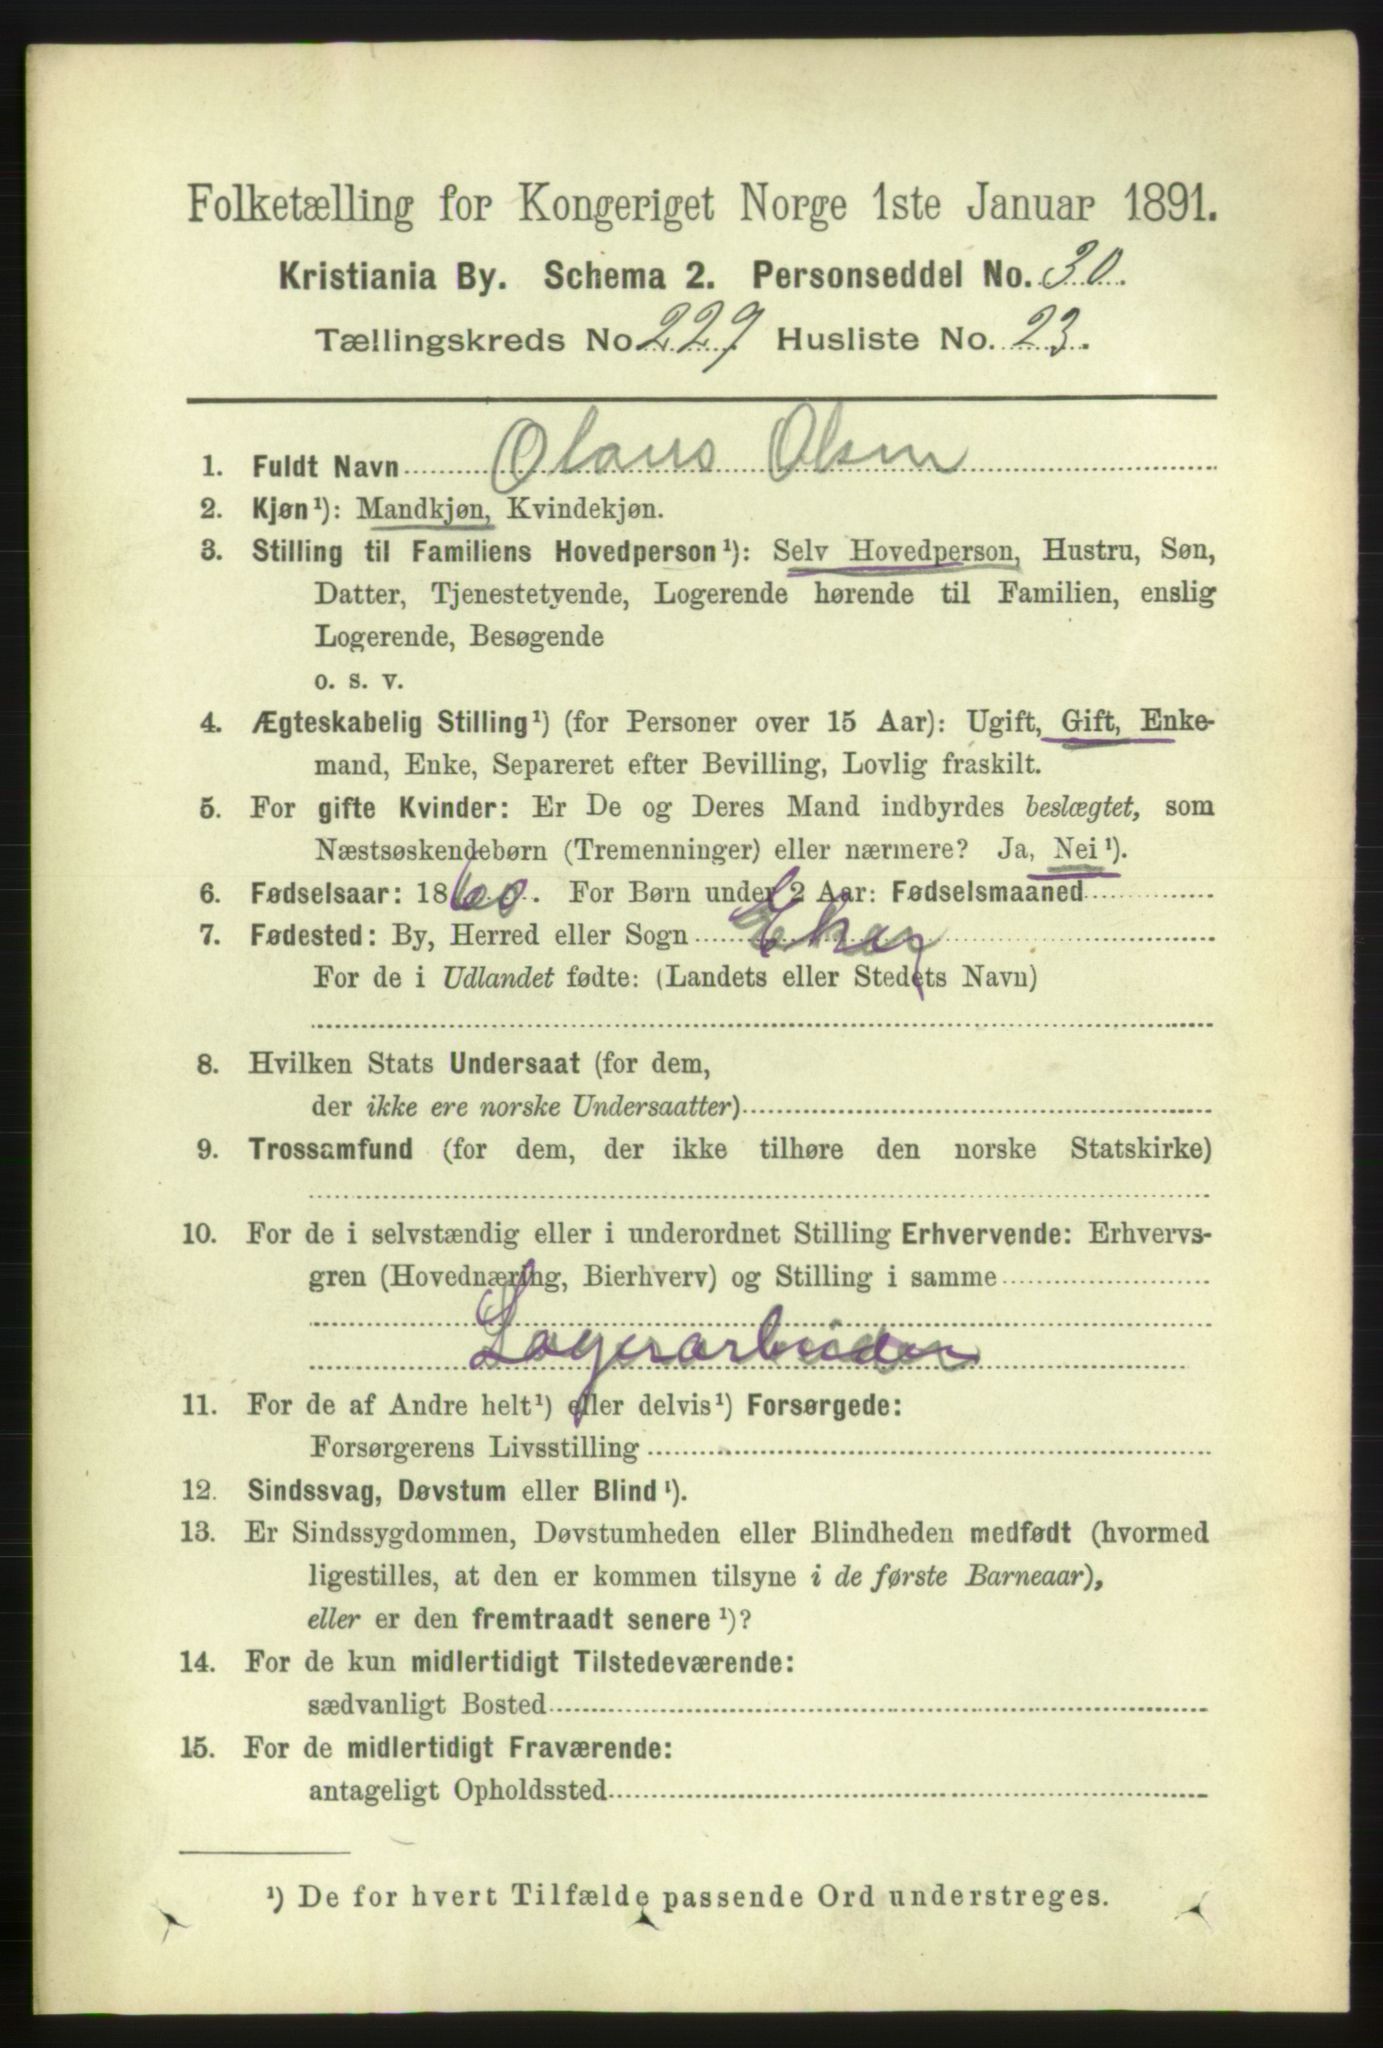 Folketælling for Kongeriget Norge 1ste Januar 1891.
Kristiania By. Schema 2. Personseddel No. 30.
Tællingskreds No. 229 Husliste No. 23.
1. Fuldt Navn Olaus Olsen
2. Kjøn¹): Mandkjøn, Kvindekjøn.
3. Stilling til Familiens Hovedperson¹): Selv Hovedperson, Hustru, Søn,
Datter, Tjenestetyende, Logerende hørende til Familien, enslig
Logerende, Besøgende
o. s. v.
4. Ægteskabelig Stilling¹) (for Personer over 15 Aar): Ugift, Gift, Enke-
mand, Enke, Separeret efter Bevilling, Lovlig fraskilt.
5. For gifte Kvinder: Er De og Deres Mand indbyrdes beslægtet, som
Næstsøskendebørn (Tremenninger) eller nærmere? Ja, Nei¹).
6. Fødselsaar: 1860. For Børn under 2 Aar: Fødselsmaaned
7. Fødested: By, Herred eller Sogn Eker
For de i Udlandet fødte: (Landets eller Stedets Navn)
8. Hvilken Stats Undersaat (for dem,
der ikke ere norske Undersaatter)
9. Trossamfund (for dem, der ikke tilhøre den norske Statskirke)
10. For de i selvstændig eller i underordnet Stilling Erhvervende: Erhvervs-
gren (Hovednæring, Bierhverv) og Stilling i samme
Lagerarbeider
11. For de af Andre helt¹) eller delvis¹) Forsørgede:
Forsørgerens Livsstilling
12. Sindssvag, Døvstum eller Blind¹).
13. Er Sindssygdommen, Døvstumheden eller Blindheden medfødt (hvormed
ligestilles, at den er kommen tilsyne i de første Barneaar),
eller er den fremtraadt senere¹)?
14. For de kun midlertidigt Tilstedeværende:
sædvanligt Bosted
15. For de midlertidigt Fraværende:
antageligt Opholdssted
¹) De for hvert Tilfælde passende Ord understreges.